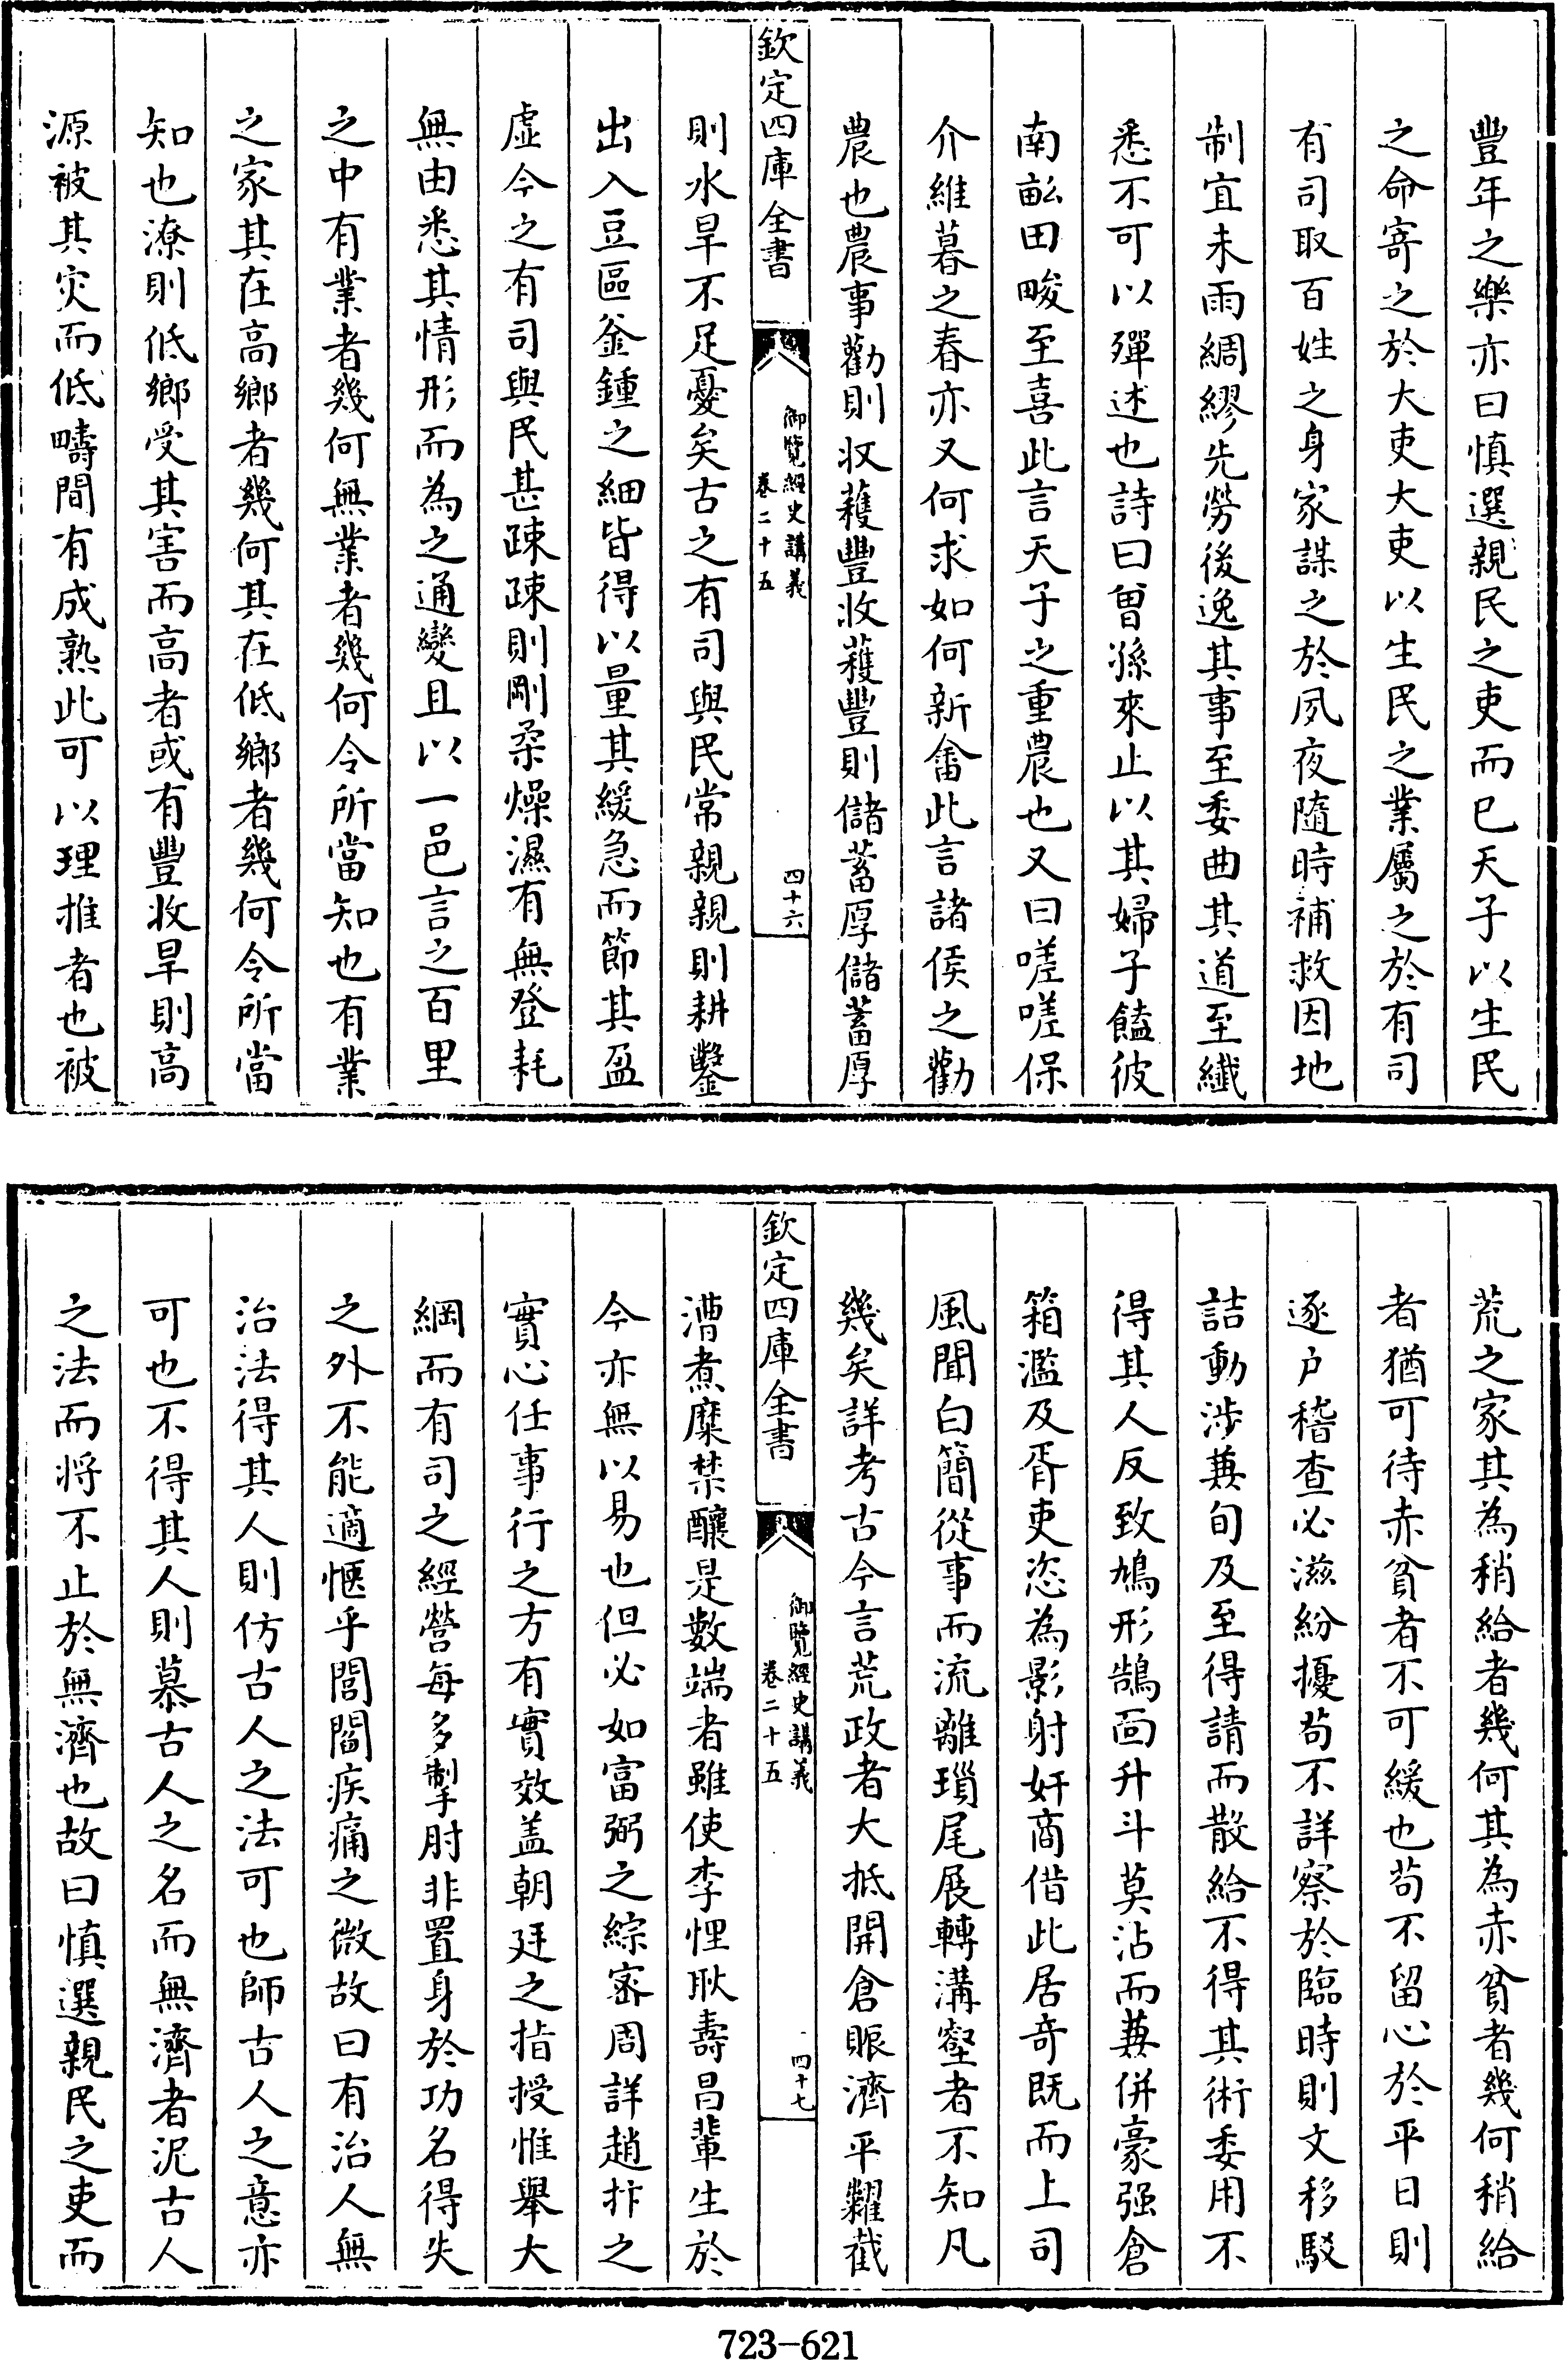 豐年之樂亦曰慎選親民之吏而已天子以生民
之命寄之於大吏大吏以生民之業屬之於有司
有司取百姓之身家謀之於夙夜隨時補救因地
制宜未雨綢繆先勞後逸其事至委曲其道至纖
悉不可以殫述也詩曰曾孫來止以其婦子饁彼
南畝田畯至喜此言天子之重農也又曰嗟嗟保
介維暮之春亦又何求如何新畬此言諸侯之勸
農也農事勸則收穫豐收穫豐則儲蓄厚儲蓄厚
欽定四庫全書
御覽經史講義
卷二十五
四十六
則水旱不足憂矣古之有司與民常親親則耕鑿
出入豆區釜鍾之細皆得以量其緩急而節其盈
虛今之有司與民甚疎疎則剛柔燥濕有無登耗
無由悉其情形而為之通變且以一邑言之百里
之中有業者幾何無業者幾何令所當知也有業
之家其在高鄉者幾何其在低鄉者幾何令所當
知也潦則低鄉受其害而高者或有豐收旱則高
源被其灾而低疇間有成熟此可以理推者也被
荒之家其為稍給者幾何其為赤貧者幾何稍給
者猶可待赤貧者不可緩也苟不留心於平日則
逐戶稽查必滋紛擾苟不詳察於臨時則文移駁
詰動涉兼旬及至得請而散給不得其術委用不
得其人反致鳩形鵠面升斗莫沾而兼併豪强倉
箱濫及胥吏恣為影射奸商借此居奇既而上司
風聞白簡從事而流離瑣尾展轉溝壑者不知凡
幾矣詳考古今言荒政者大抵開倉賑濟平糶截
欽定四庫全書
御覽經史講義
卷二十五
四十七
漕煮糜禁釀是數端者雖使李悝耿壽昌輩生於
今亦無以易也但必如富弼之綜密周詳趙抃之
實心任事行之方有實效盖朝廷之指授惟舉大
綱而有司之經營每多掣肘非置身於功名得失
之外不能適愜乎閭閻疾痛之微故曰有治人無
治法得其人則仿古人之法可也師古人之意亦
可也不得其人則慕古人之名而無濟者泥古人
之法而將不止於無濟也故曰慎選親民之吏而
723-621